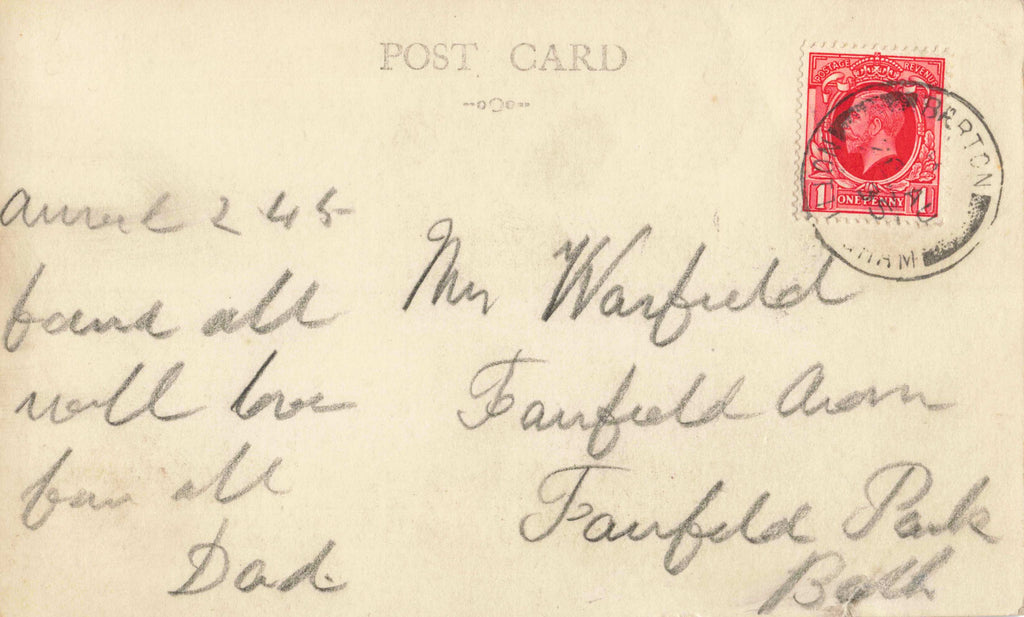 POST CARD
POSTAGE REVENUE
1 ONE PENNY 1
BARTON
HAM
2 45
found all
well love
from all
Dad.
Mr Warfield
Fairfield Arms
Fairfield Park
Bath